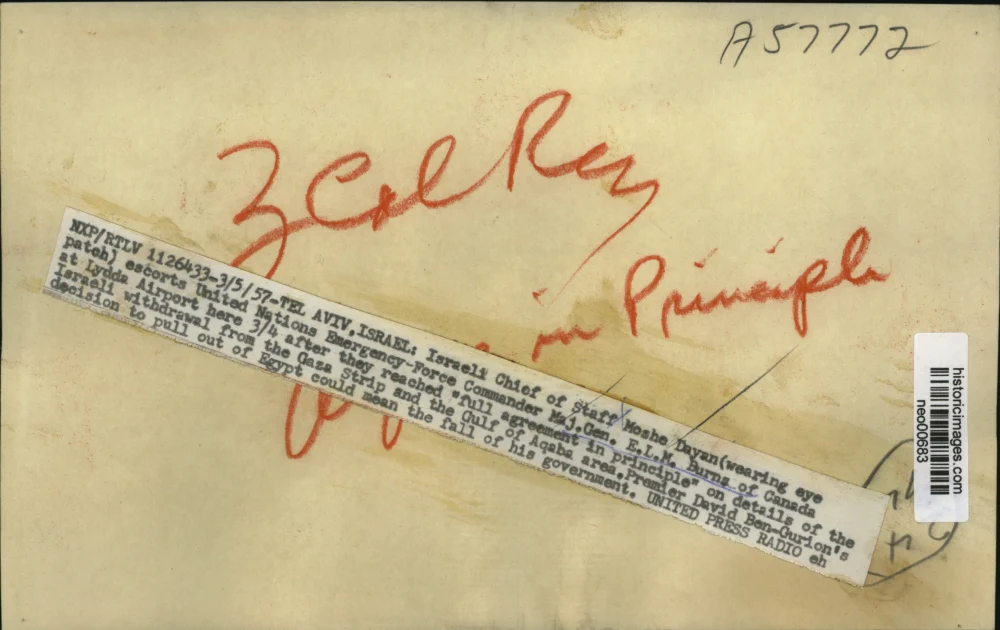 A57772
2 Col Rey
in Principle
NXP/RTLV 1126433-3/5/57-TEL AVIV,ISRAEL: Israeli Chief of Staff Moshe Dayan(wearing eye
patch) escorts United Nations Emergency-Force Commander Maj.Gen. E.L.M. Burns of Canada
at Lydda Airport here 3/4 after they reached "full agreement in principle" on details of the
Israeli withdrawal from the Gaza Strip and the Gulf of Aqaba area.Premier David Ben-Gurion's
decision to pull out of Egypt could mean the fall of his government. UNITED PRESS RADIO eh
historicimages.com
neo00683